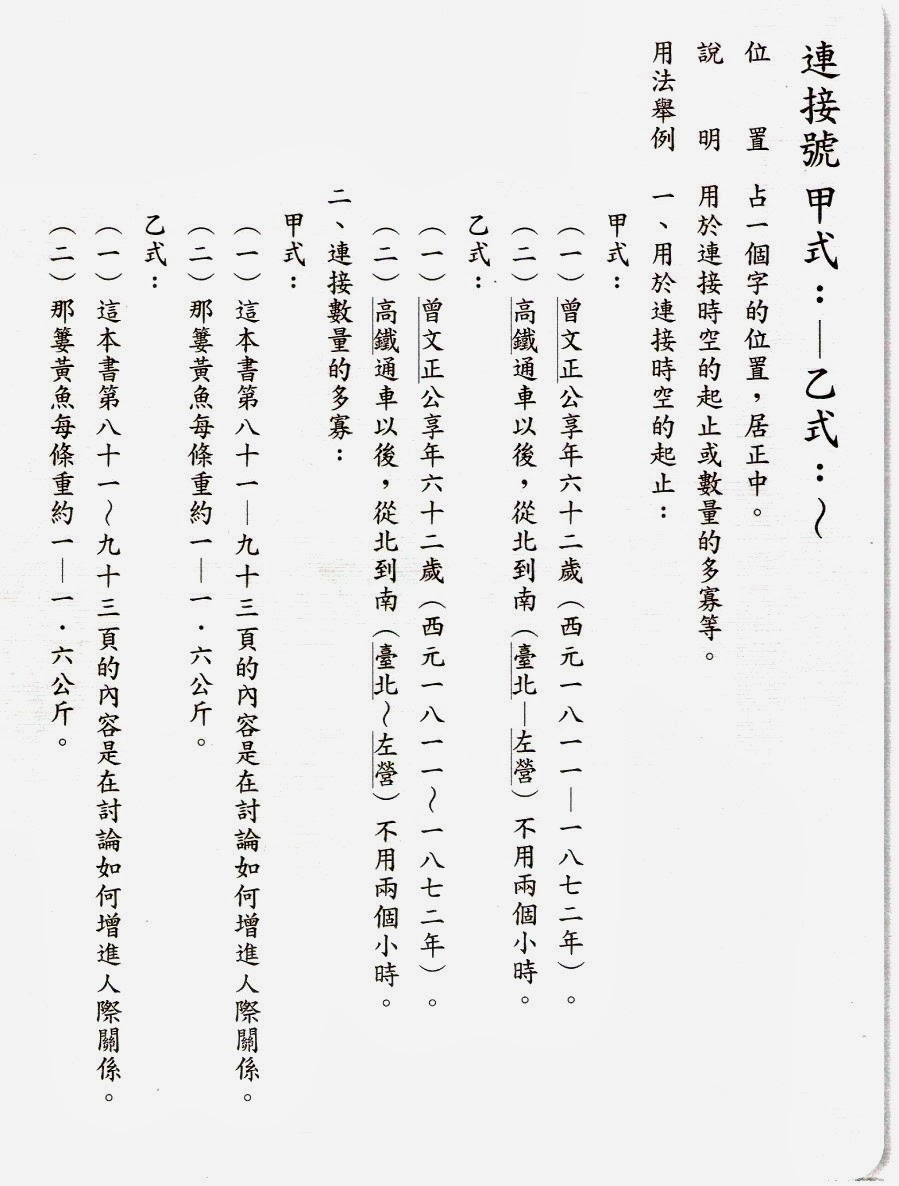 連接號 甲式：—乙式：～
位置 占一個字的位置，居正中。
說明 用於連接時空的起止或數量的多寡等。
用法舉例 一、用於連接時空的起止：
甲式：
（一）曾文正公享年六十二歲（西元一八一一—一八七二年）。
（二）高鐵通車以後，從北到南（臺北—左營）不用兩個小時。
乙式：
（一）曾文正公享年六十二歲（西元一八一一～一八七二年）。
（二）高鐵通車以後，從北到南（臺北～左營）不用兩個小時。
二、連接數量的多寡：
甲式：
（一）這本書第八十一—九十三頁的內容是在討論如何增進人際關係。
（二）那簍黃魚每條重約一—一．六公斤。
乙式：
（一）這本書第八十一～九十三頁的內容是在討論如何增進人際關係。
（二）那簍黃魚每條重約一—一．六公斤。